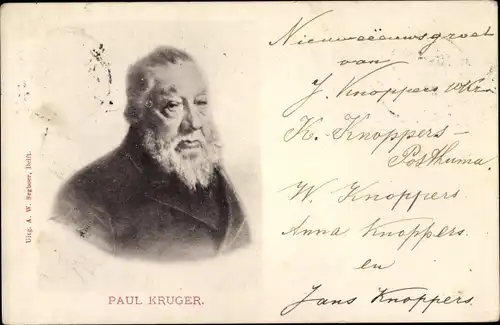 Nieuweeuwsgroet
van
J. Knoppers
K. Knoppers -
Posthuma.
W. Knoppers.
Anna Knoppers.
en
Jans Knoppers.
Uitg. A. W. Segboer, Delft.
PAUL KRUGER.